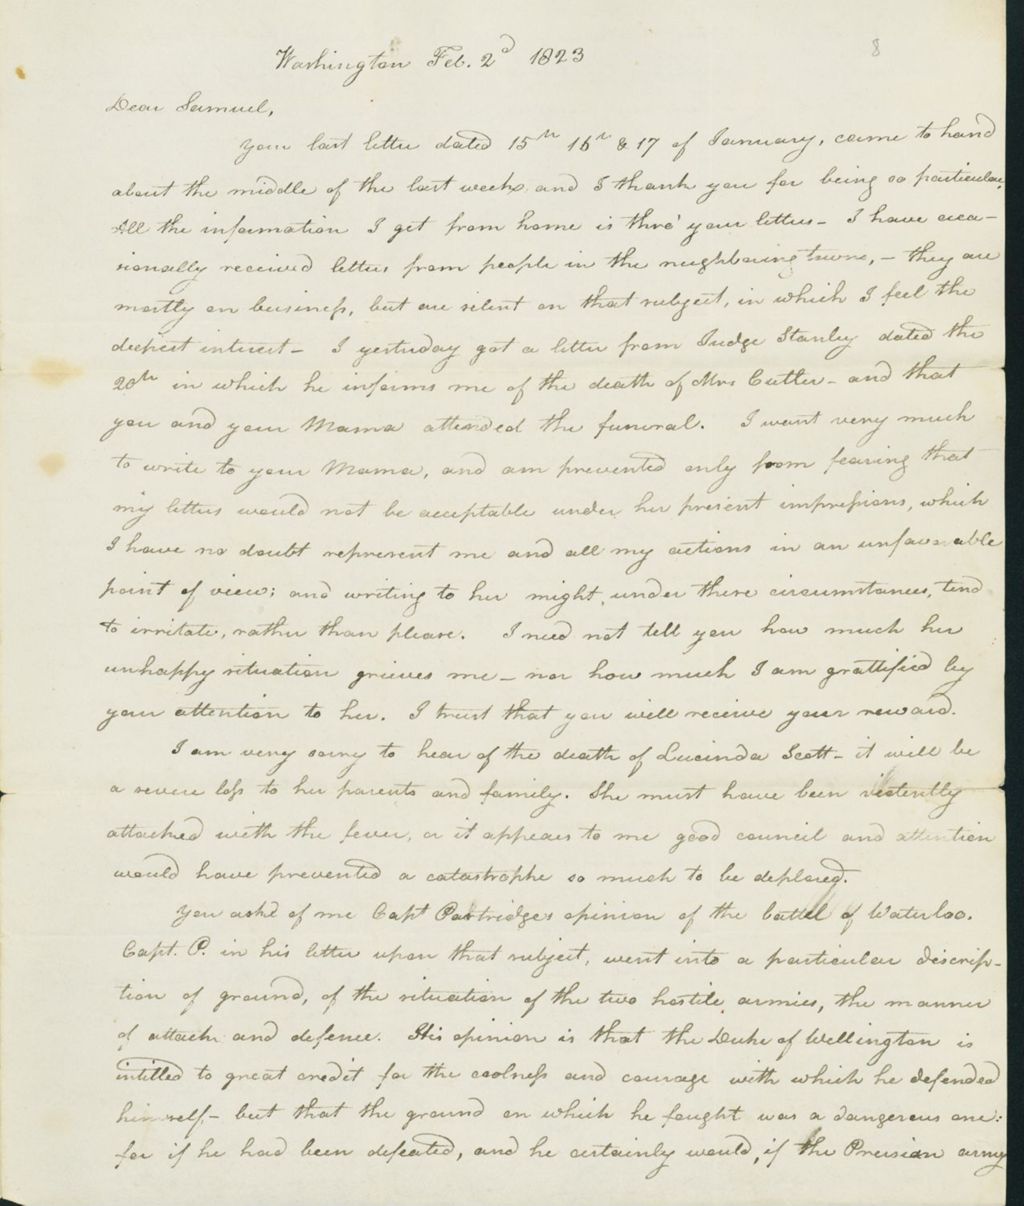 8
Washington Feb. 2d 1823
Dear Samuel,
Your last letter dated 15th 16th & 17 of January, came to hand
about the middle of the last week, and I thank you for being so particular,
All the information I get from home is thro' your letters - I have occa-
sionally received letters from people in the neighbouring towns, - they are
mostly on business, but are silent on that subject, in which I feel the
deepest interest - I yesterday got a letter from Judge Stanley dated the
20th in which he informs me of the death of Mrs Cutler - and that
you and your Mama attended the funeral. I want very much
to write to your Mama, and am prevented only from fearing that
my letters would not be acceptable under her present impressions, which
I have no doubt represent me and all my actions in an unfavorable
point of view; and writing to her might, under these circumstances, tend
to irritate, rather than please. I need not tell you how much her
unhappy situation grieves me - nor how much I am grattified by
your attention to her. I trust that you will receive your reward.
I am very sorry to hear of the death of Lucinda Scott - it will be
a severe loss to her parents and family. She must have been violently
attacked with the fever, or it appears to me good council and attention
would have prevented a catastrophe so much to be deplored.
You asked of me Capt Partridges opinion of the battel of Waterloo.
Capt. P. in his letter upon that subject, went into a particular descrip-
tion of ground, of the situation of the two hostile armies, the manner
of attack and defence. His opinion is that the Duke of Wellington is
intitled to great credit for the coolness and courage with which he defended
himself, - but that the ground on which he fought was a dangerous one:
for if he had been defeated, and he certainly would, if the Preusian army